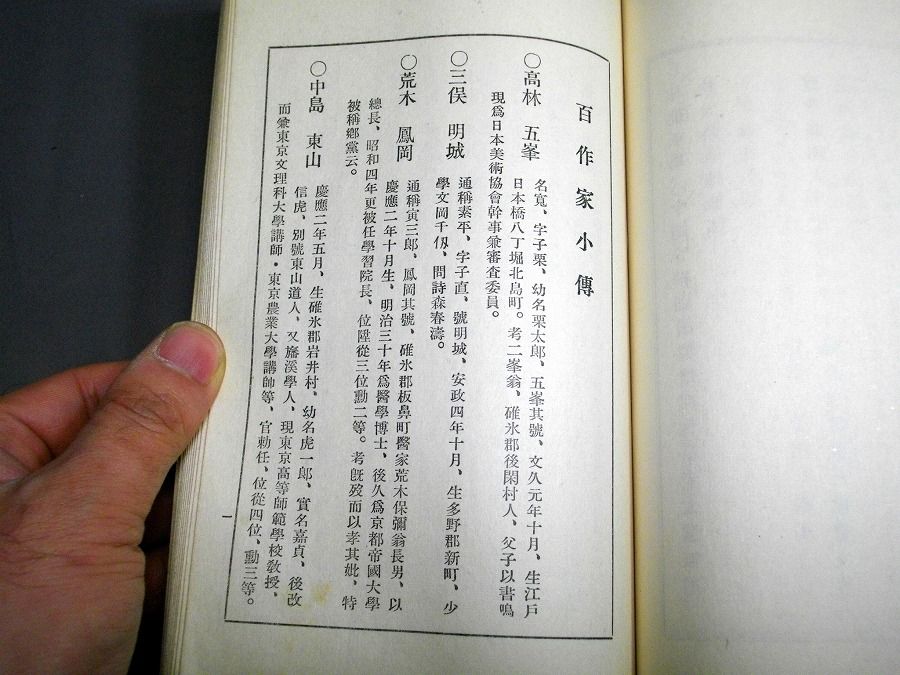 百作家小傳
○高林　五峯　名寬、字子栗、幼名栗太郎、五峯其號、文久元年十月、生江戶
日本橋八丁堀北島町。考二峯翁、碓氷郡後閑村人、父子以書鳴
現爲日本美術協會幹事兼審査委員。
○三俣　明城　通稱素平、字子直、號明城、安政四年十月、生多野郡新町、少
學文岡千仭、問詩森春濤。
○荒木　鳳岡　通稱寅三郎、鳳岡其號、碓氷郡板鼻町醫家荒木保彌翁長男、以
慶應二年十月生、明治三十年爲醫學博士、後久爲京都帝國大學
總長、昭和四年更被任學習院長、位陞從三位勳二等。考旣歿而以孝其妣、特
被稱鄕黨云。
○中島　東山　慶應二年五月、生碓氷郡岩井村、幼名虎一郎、實名嘉貞、後改
信虎、別號東山道人、又㵎溪學人、現東京高等師範學校敎授、
而兼東京文理科大學講師・東京農業大學講師等、官勅任、位從四位、勳三等。
一